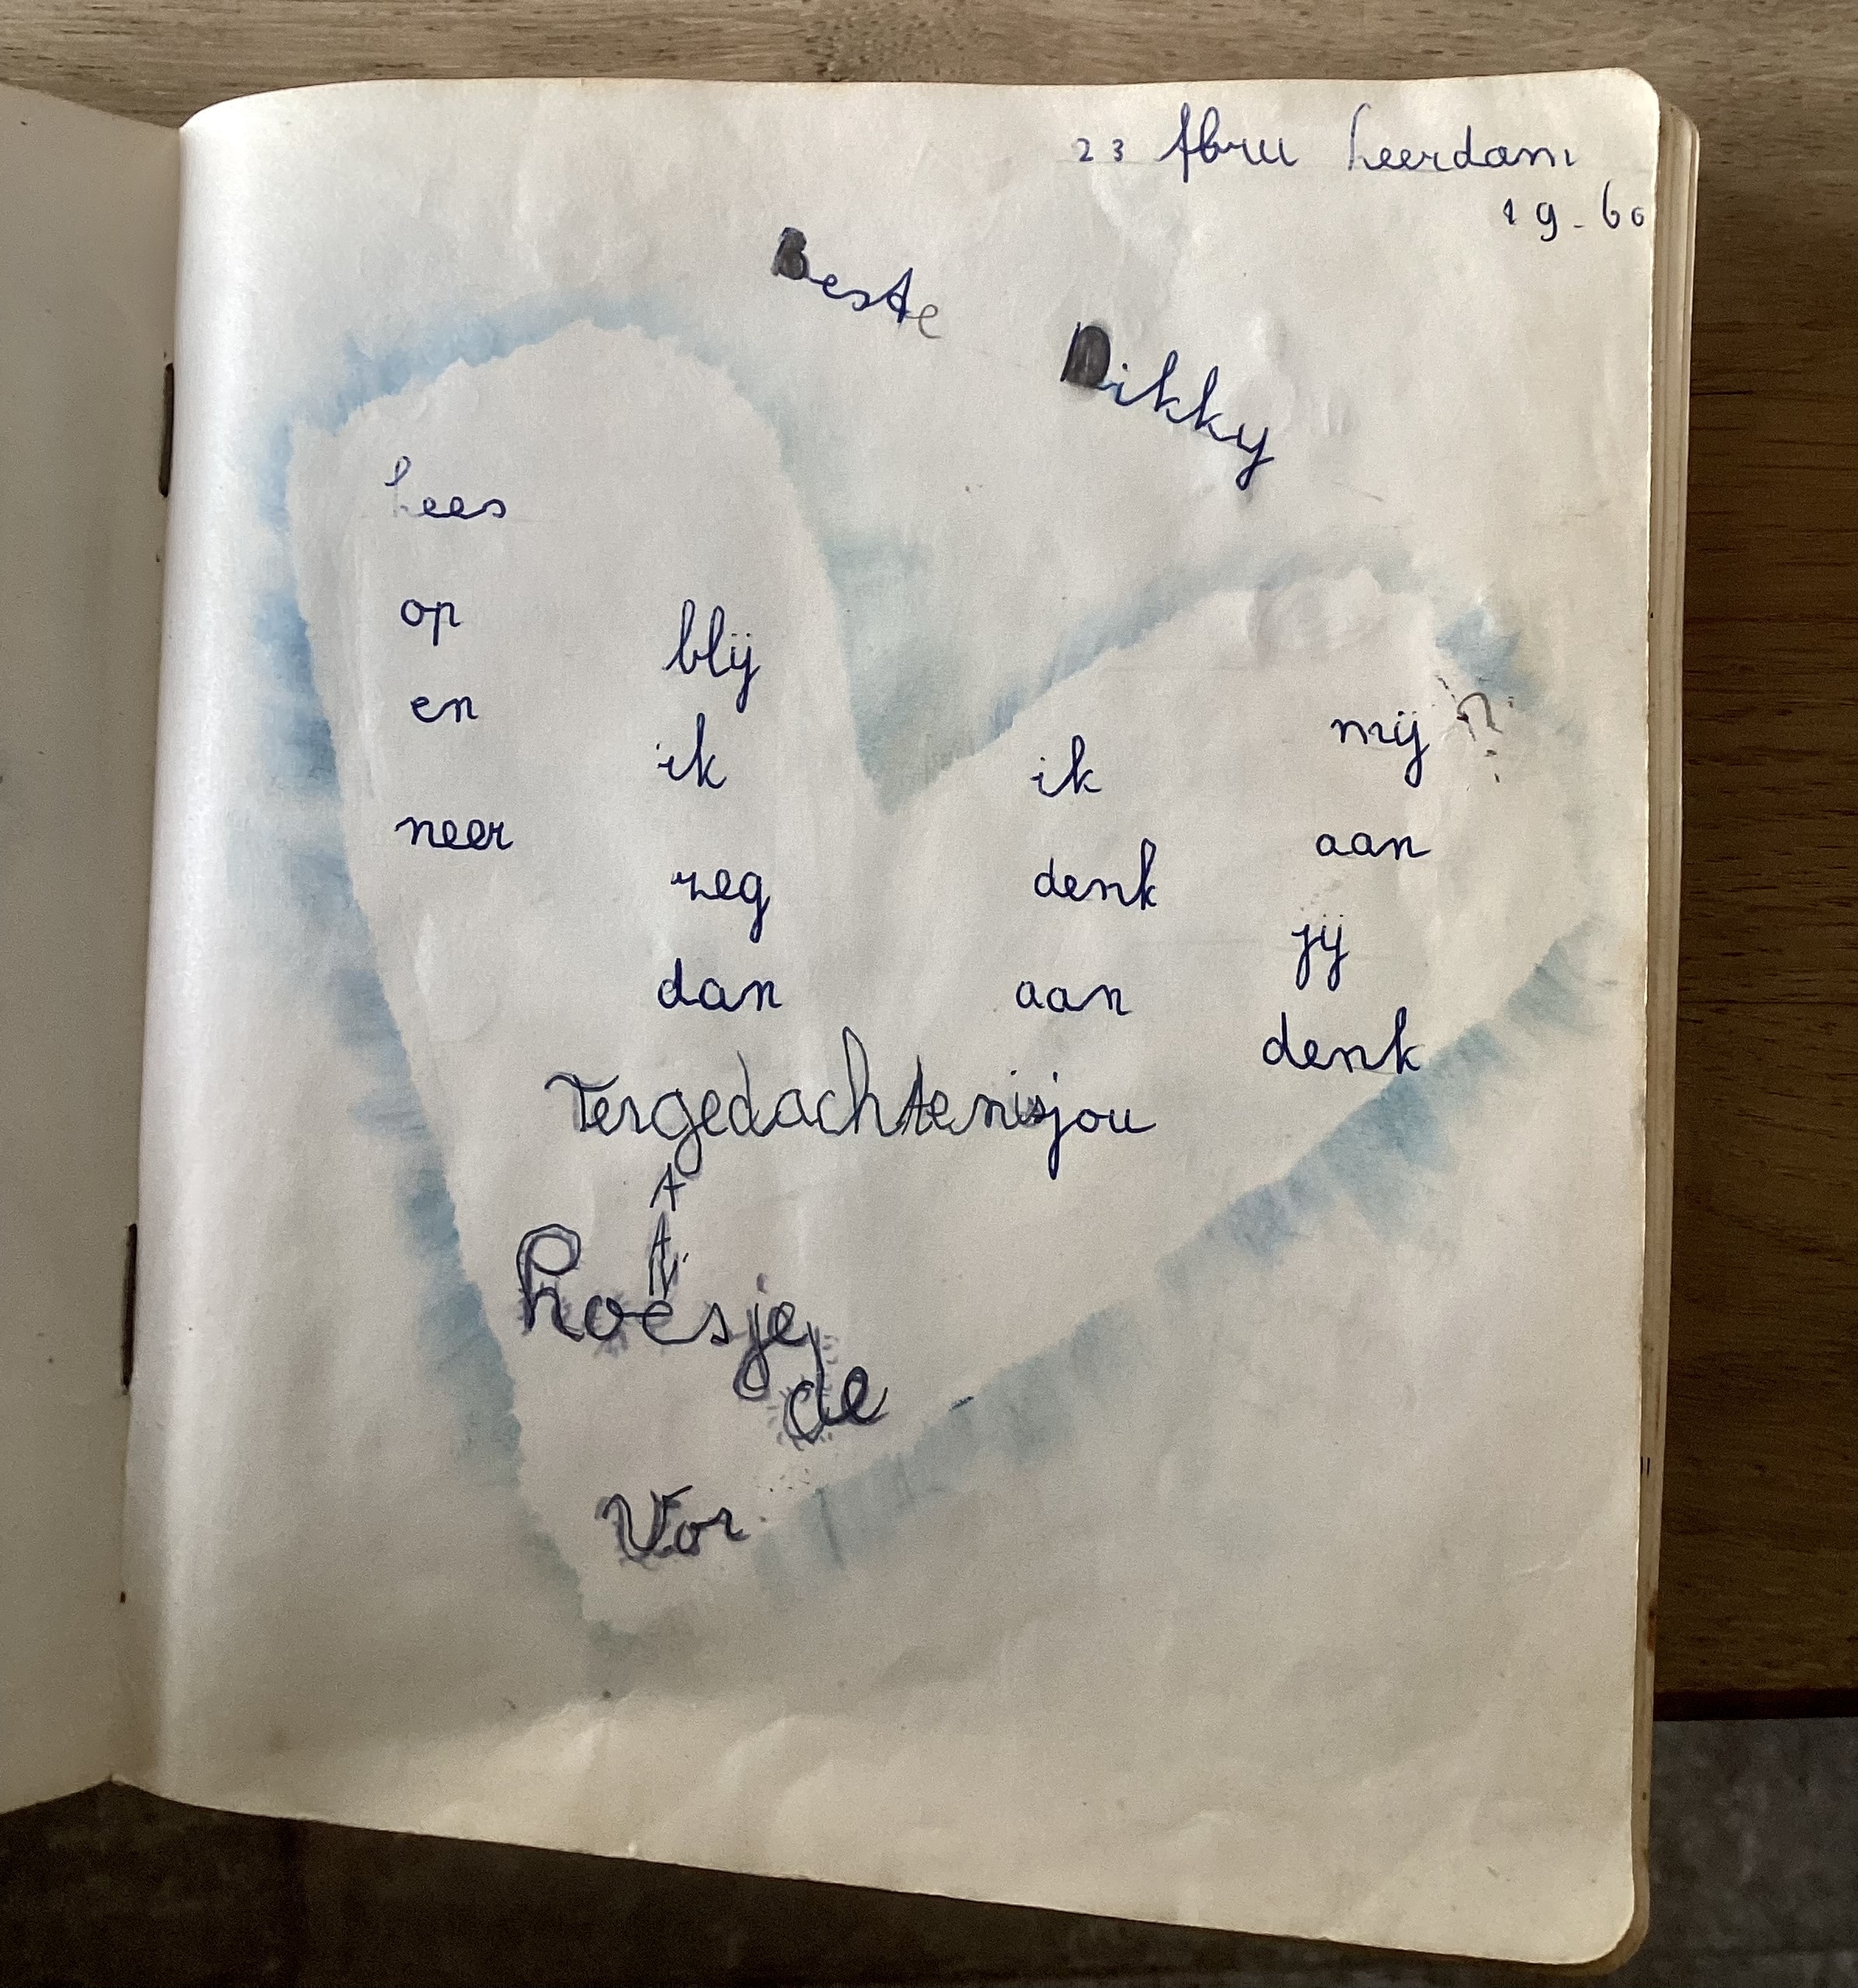 23 fbru Leerdam
19-60
Beste
Dikky
Lees
op
en
neer
blij
ik
zeg
dan
ik
denk
aan
jou
mij ?
aan
jij
denk
Tergedachtenis
A
A
N
Loesje
de
Vor